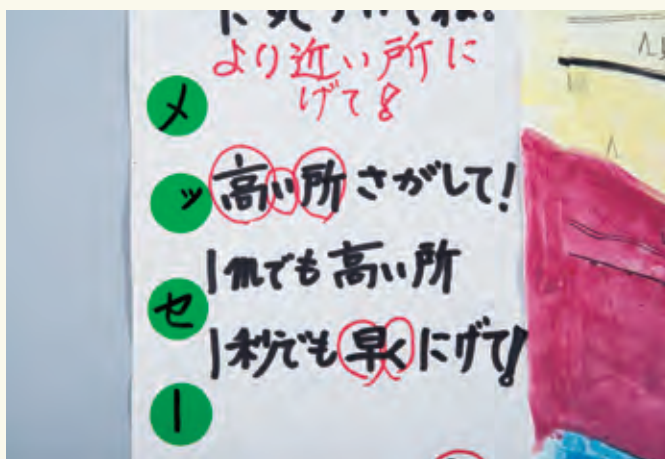 より近い所に
げて!
メッセー
高い所さがして!
1mでも高い所
1秒でも早くにげて!